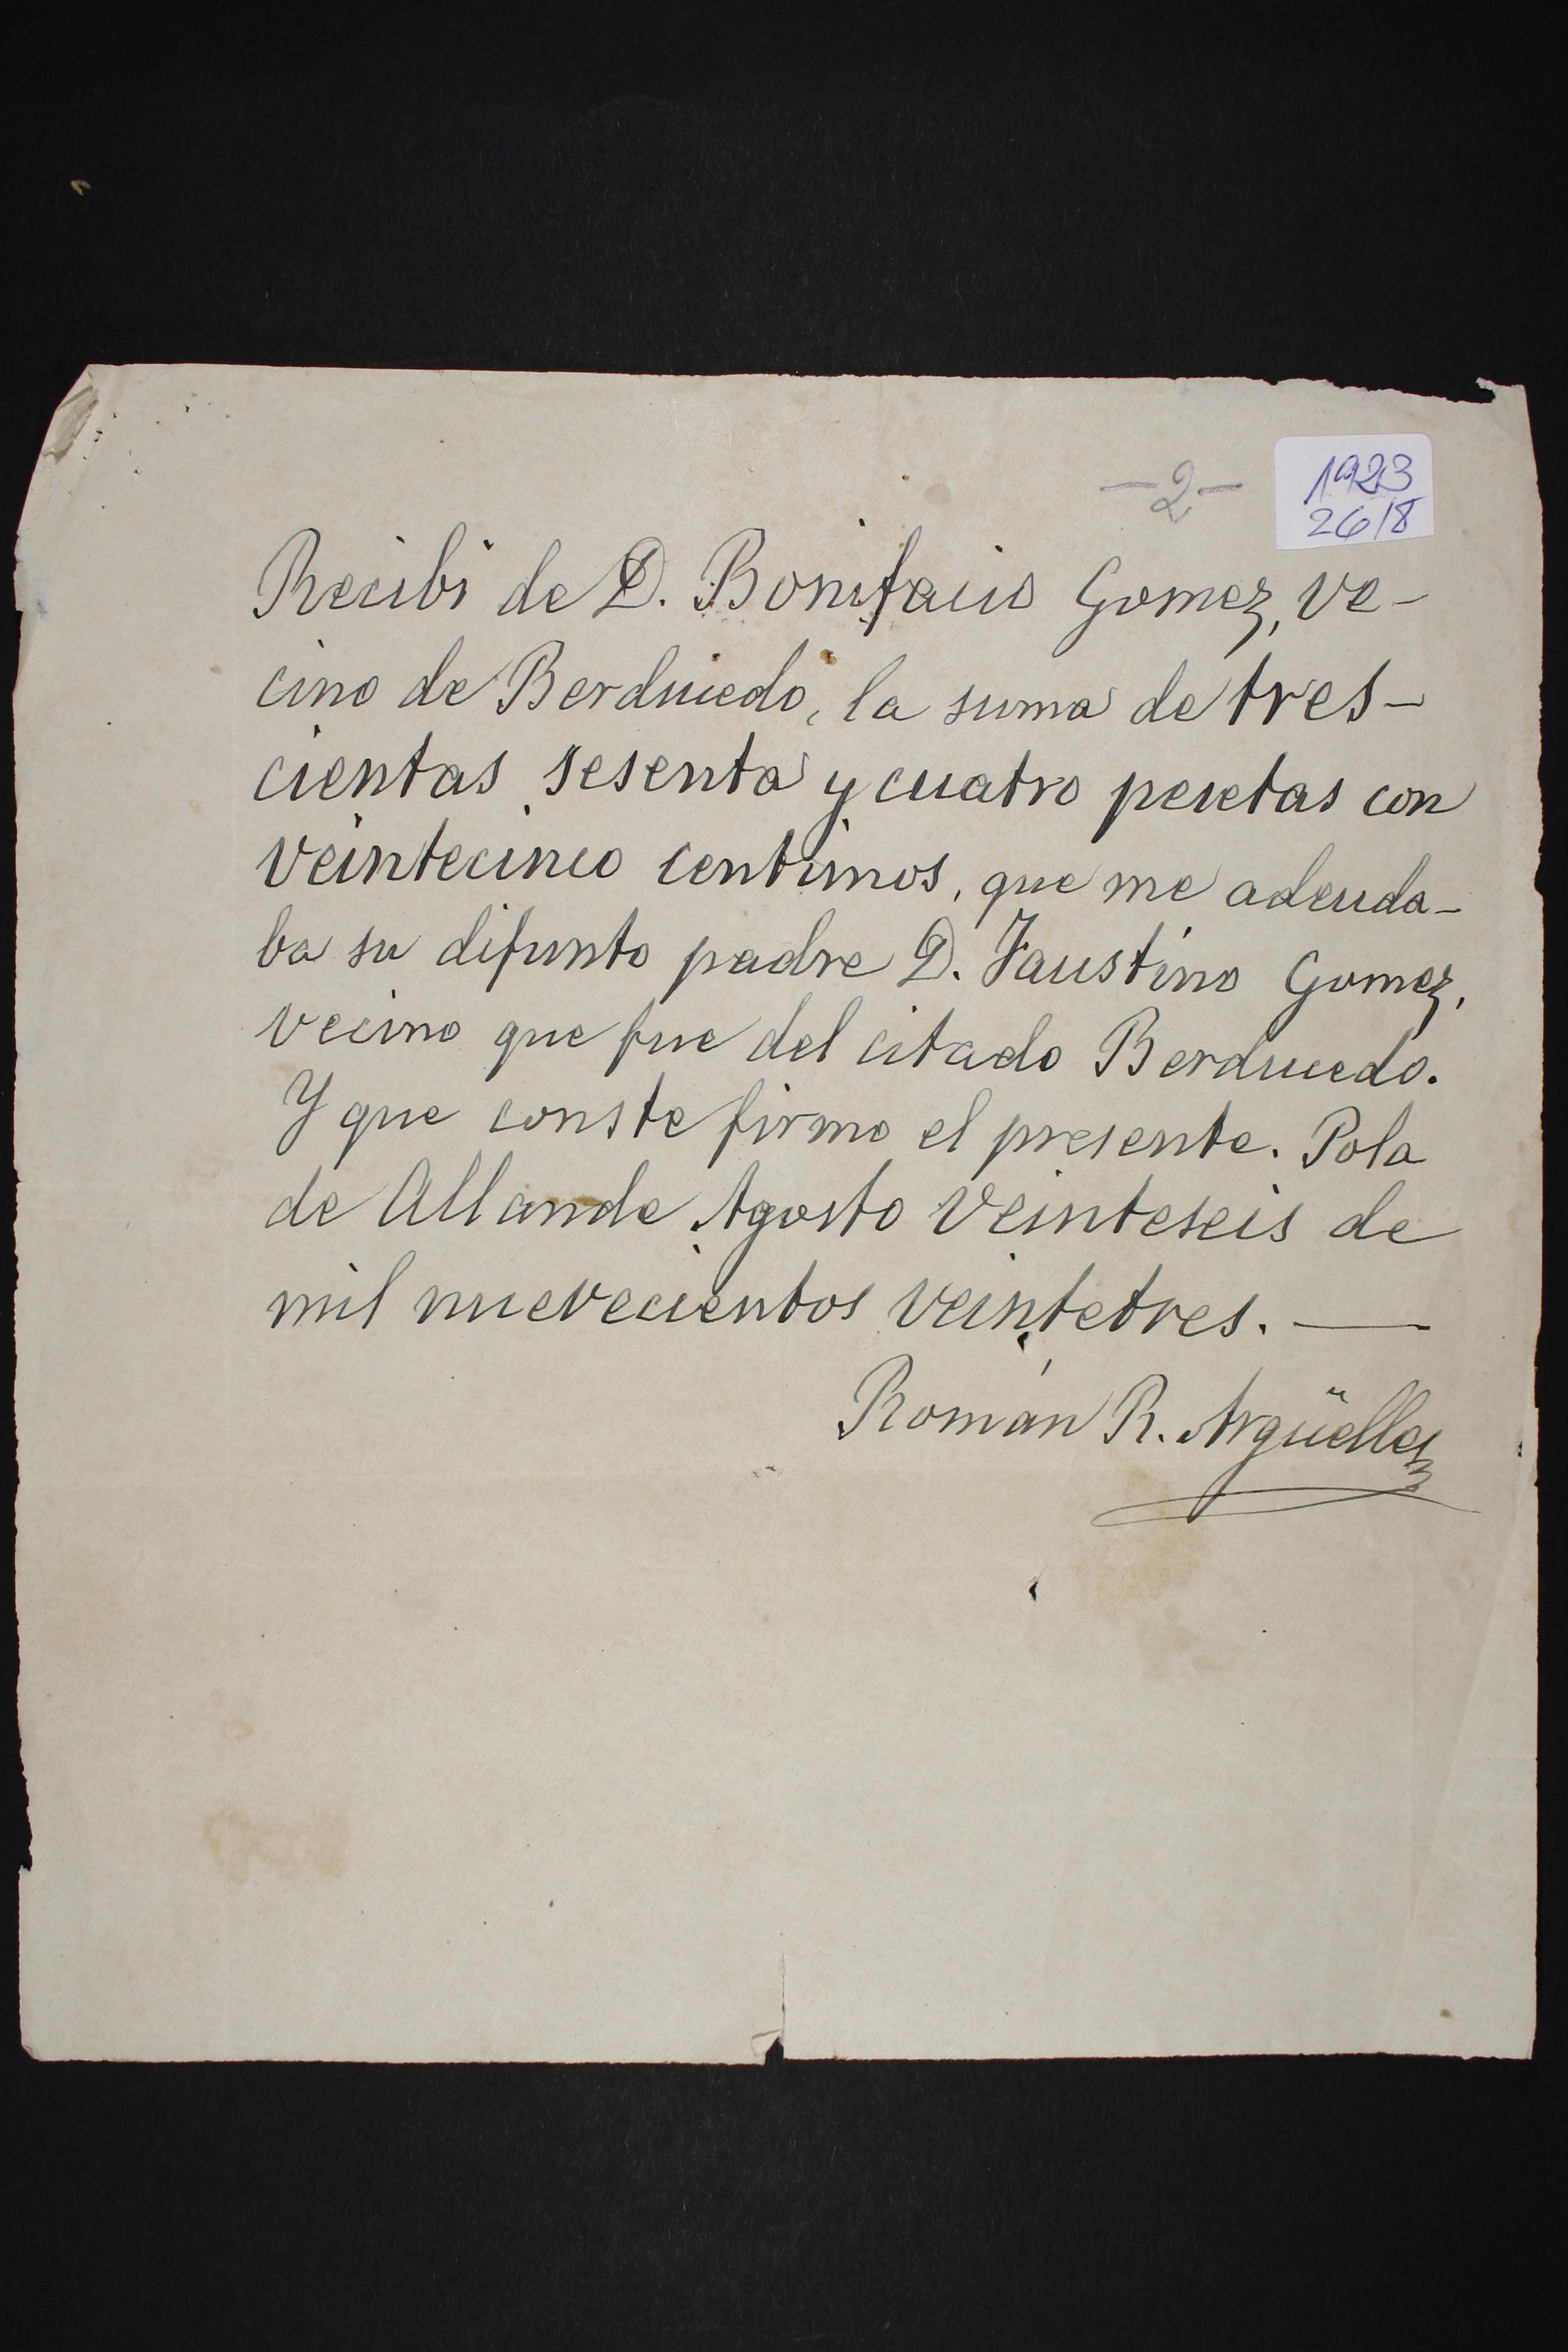 -2-
1923
26/8
Recibi de D. Bonifacio Gomez, ve-
cino de Berducedo, la suma de tres-
cientas sesenta y cuatro pesetas con
veintecinco centimos, que me adeuda-
ba su difunto padre D. Faustino Gomez,
vecino que fue del citado Berducedo.
Y que conste firmo el presente. Pola
de Allande Agosto veinteseis de
mil nuevecientos veintetres. —
Román R. Argüelles